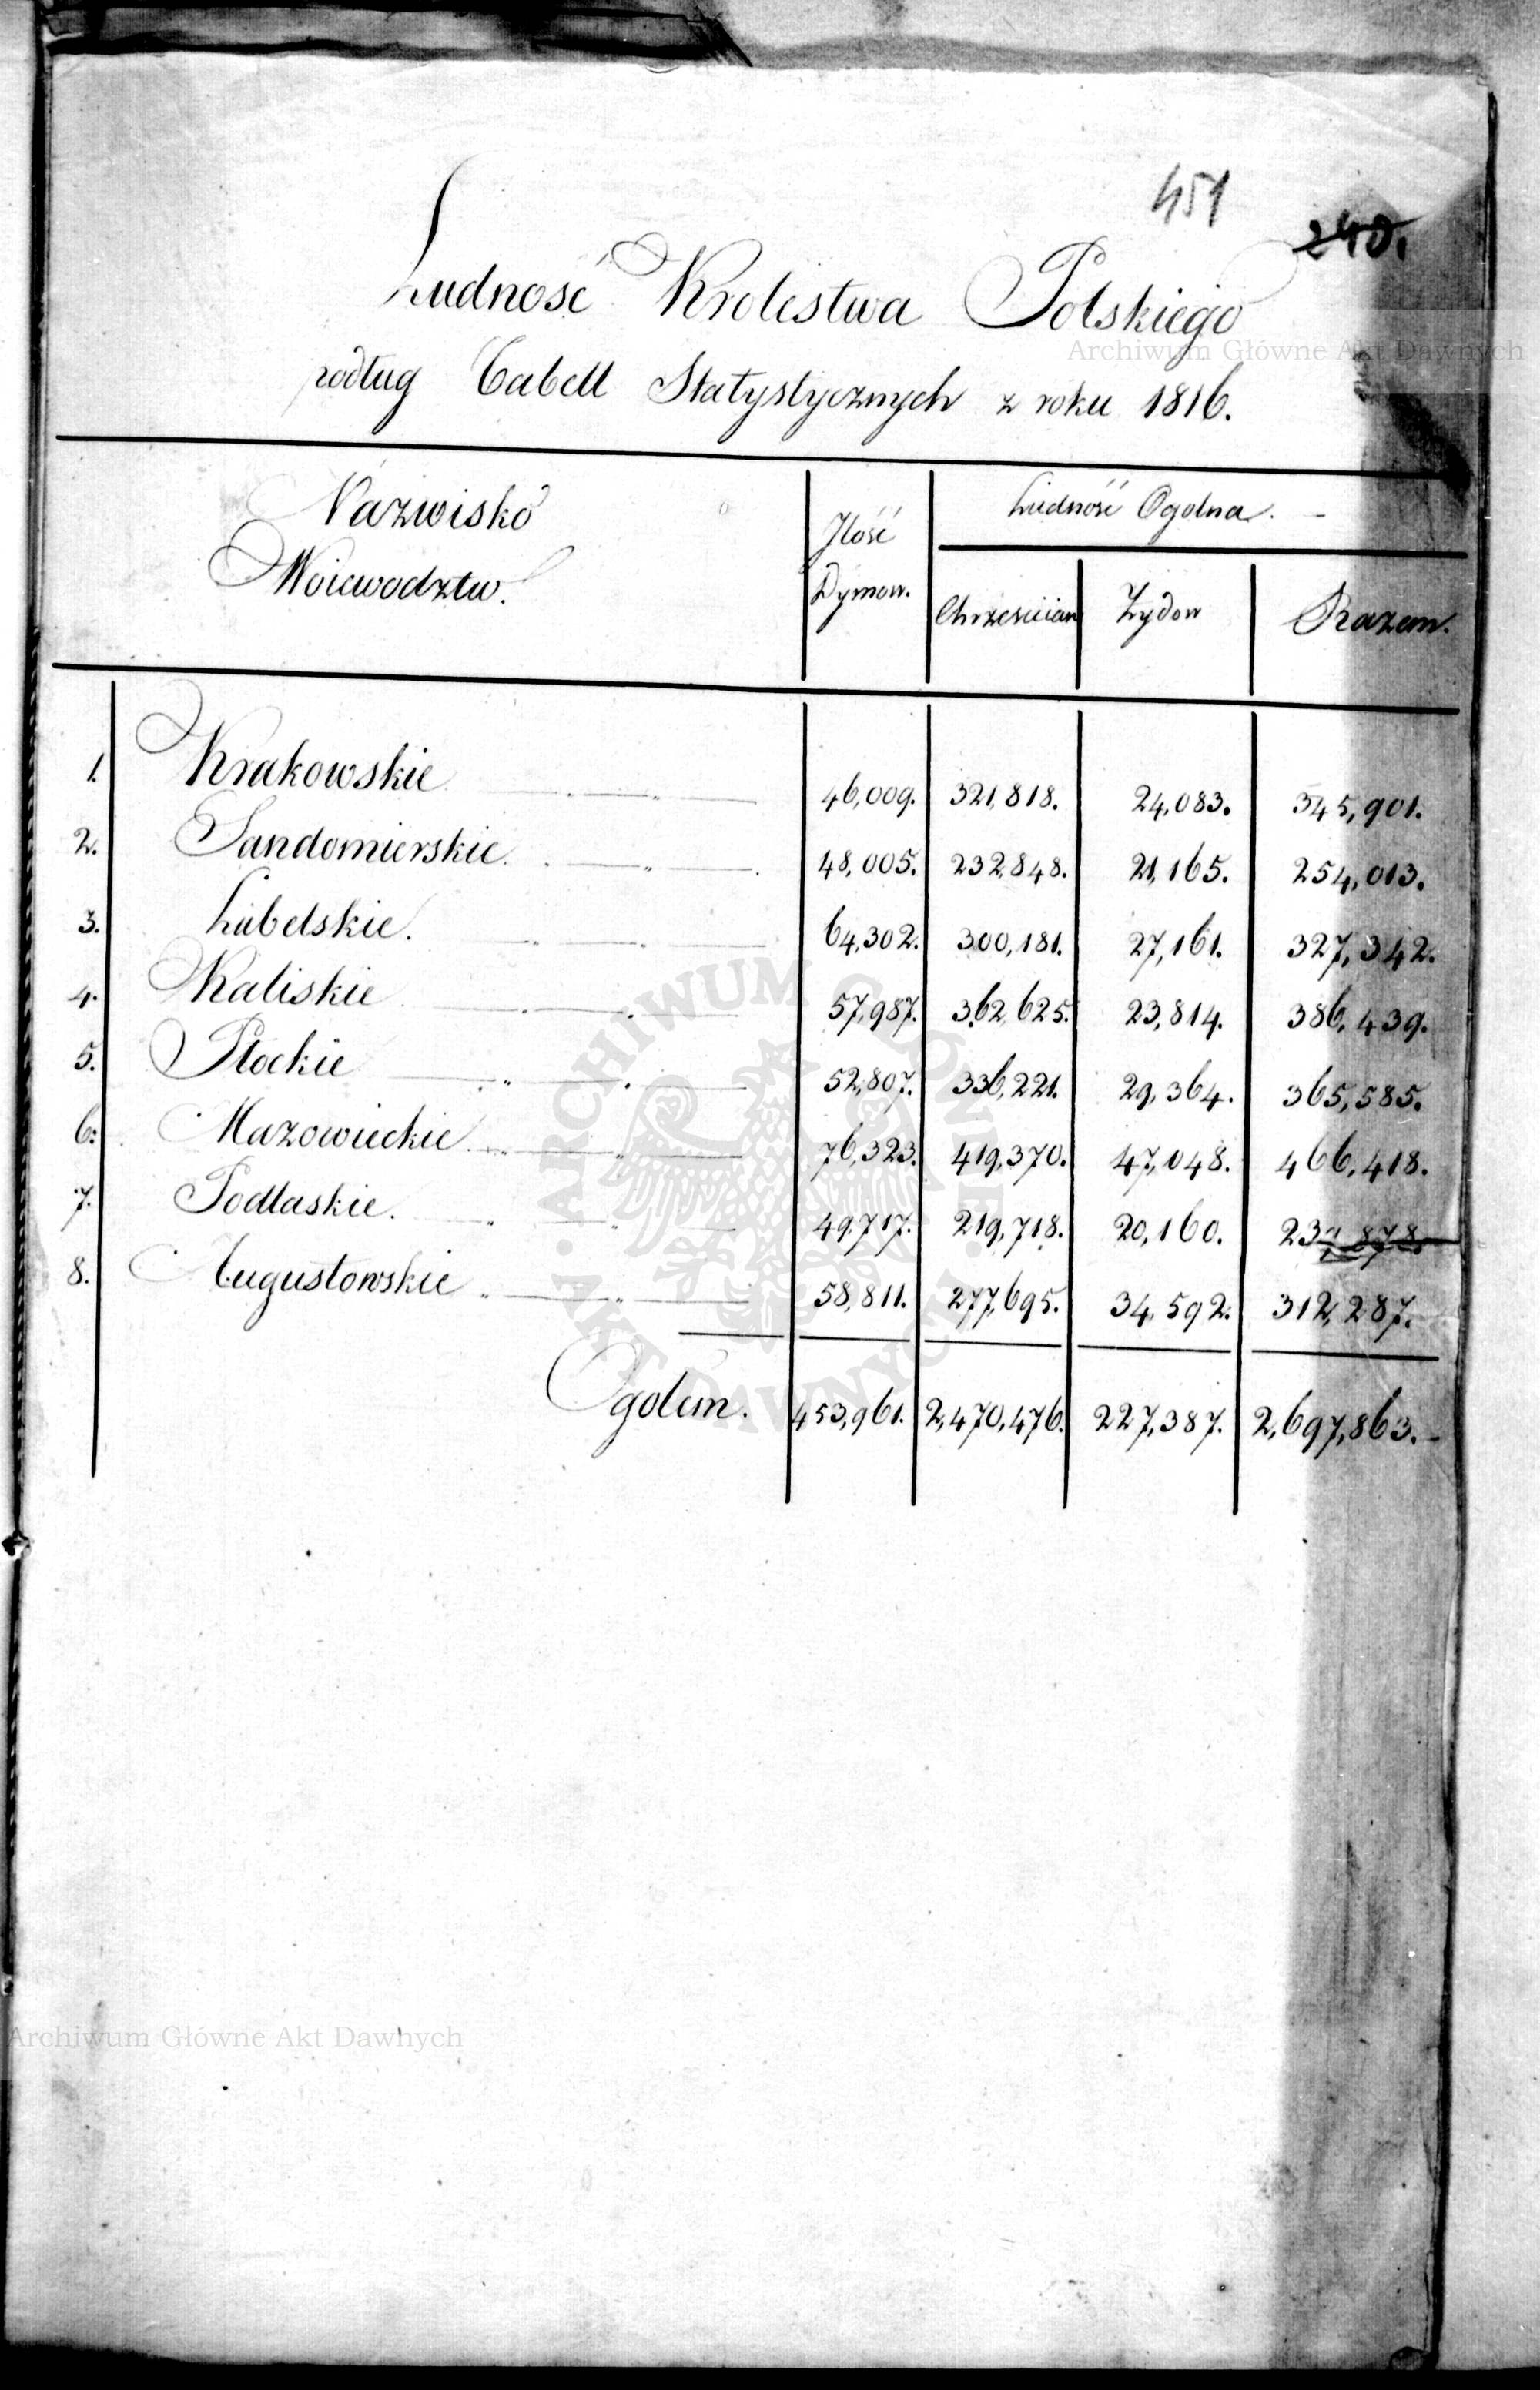 451
240.
Ludność Krolestwa Polskiego
podług Tabell Statystycznych z roku 1816.
Nazwisko
Woiewodztw.
Ilość
Dymow.
Ludność Ogolna.
Chrześciian
Żydow
Razem.
1. Krakowskie 46,009. 321,818. 24,083. 345,901.
2. Sandomierskie. 48,005. 232,848. 21,165. 254,013.
3. Lubelskie. 64,302. 300,181. 27,161. 327,342.
4. Kaliskie 57,987. 362,625. 23,814. 386,439.
5. Płockie 52,807. 336,221. 29,364. 365,585.
6. Mazowieckie 76,323. 419,370. 47,048. 466,418.
7. Podlaskie. 49,717. 219,718. 20,160. 239,878.
8. Augustowskie 58,811. 277,695. 34,592. 312,287.
Ogolem. 453,961. 2,470,476. 227,387. 2,697,863.
Archiwum Główne Akt Dawnych
ARCHIWUM GŁÓWNE AKT DAWNYCH
Archiwum Główne Akt Dawnych